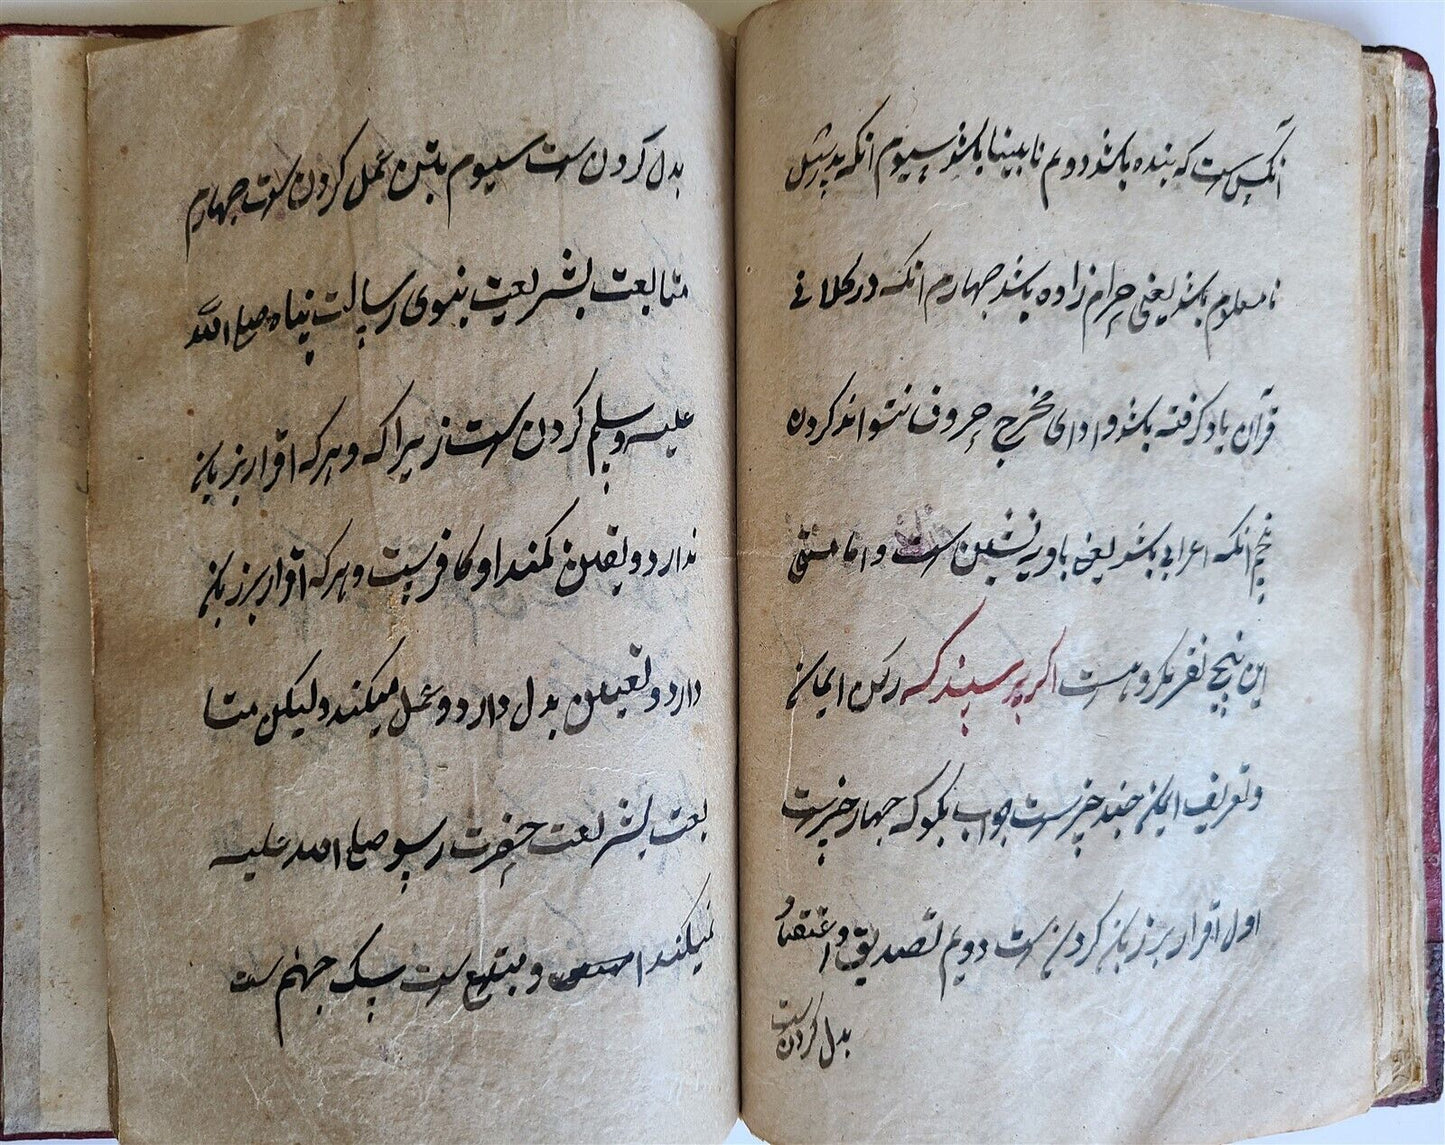 آنکس ست که بنده باشد دویم نابینا باشد سیوم انکه پدرش
نامعلوم باشد یعنی حرام زاده باشد چهارم انکه در کلانی
قرآن یاد کرفته باشد و ادای مخرج حروف نتواند کردن
پنجم انکه اعرابی باشد یعنی بادیه نشین ست و امامتی
این پنج نفر مکروهست اکر پرسیند که رکن ایمان
و تعریف ایمان چند چیزست جواب بکو که چهار چیزست
اول اقرار بزبان کردن ست دویم تصدیق و اعتقاد
بدل کردن ست
بدل کردن ست سیوم بتن عمل کردن ست چهارم
متابعت بشریعت نبوی رسالت پناه صلی الله
علیه وسلم کردن ست زیرا که و هرکه اقرار بزبان
ندارد و یقین نمکند او کافرست و هرکه اقرار بزبان
دارد و یقین بدل دارد و عمل میکند ولیکن متا
بعت بشریعت حضرت رسو صلی الله علیه
نمیکند و مبتدع ست سک جهنم ست